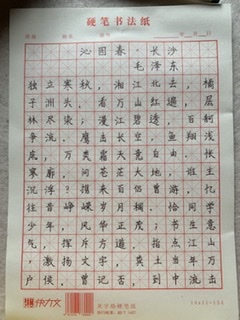 硬笔书法纸
沁园春·长沙
毛泽东
独立寒秋，湘江北去，橘
子洲头，看万山红遍，层
林尽染；漫江碧透，百舸
争流。鹰击长空，鱼翔浅
底，万类霜天竞自由。怅
寥廓，问苍茫大地，谁主
沉浮？携来百侣曾游，忆
往昔峥嵘岁月稠。恰同学
少年，风华正茂；书生意
气，挥斥方遒。指点江山
，激扬文字，粪土当年万
户侯。曾记否，到中流击
快力文